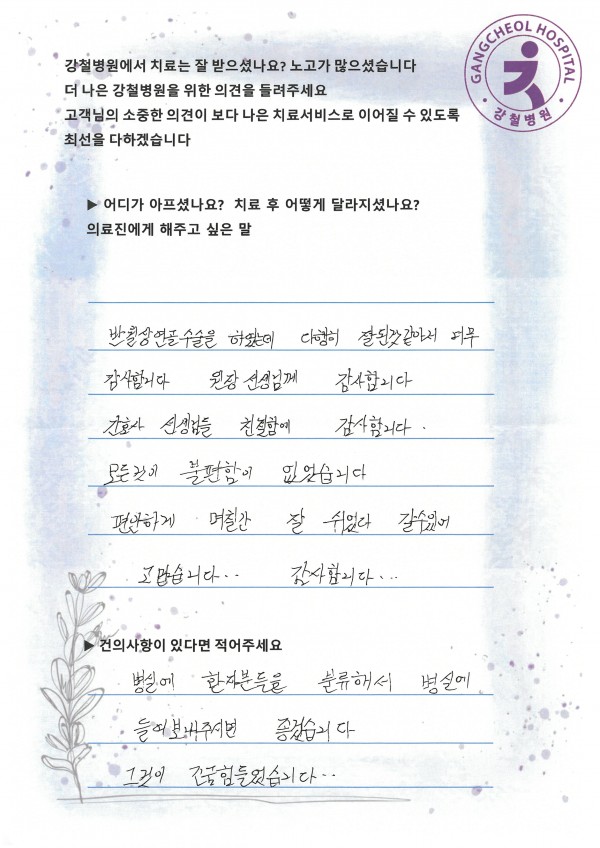 강철병원에서 치료는 잘 받으셨나요? 노고가 많으셨습니다
더 나은 강철병원을 위한 의견을 들려주세요
고객님의 소중한 의견이 보다 나은 치료서비스로 이어질 수 있도록
최선을 다하겠습니다
GANGCHEOL HOSPITAL
강철병원
▶ 어디가 아프셨나요? 치료 후 어떻게 달라지셨나요?
의료진에게 해주고 싶은 말
반월상연골수술을 하였는데 다행히 잘된것같아서 너무
감사합니다 원장 선생님께 감사합니다
간호사 선생님들 친절함에 감사합니다.
모든것이 불편함이 없었습니다
편안하게 며칠간 잘 쉬었다 갈수있에
고맙습니다.. 감사합니다...
▶ 건의사항이 있다면 적어주세요
병실에 환자분들을 분류해서 병실에
들여보내주시면 좋겠습니다
그것이 조금힘들었습니다..